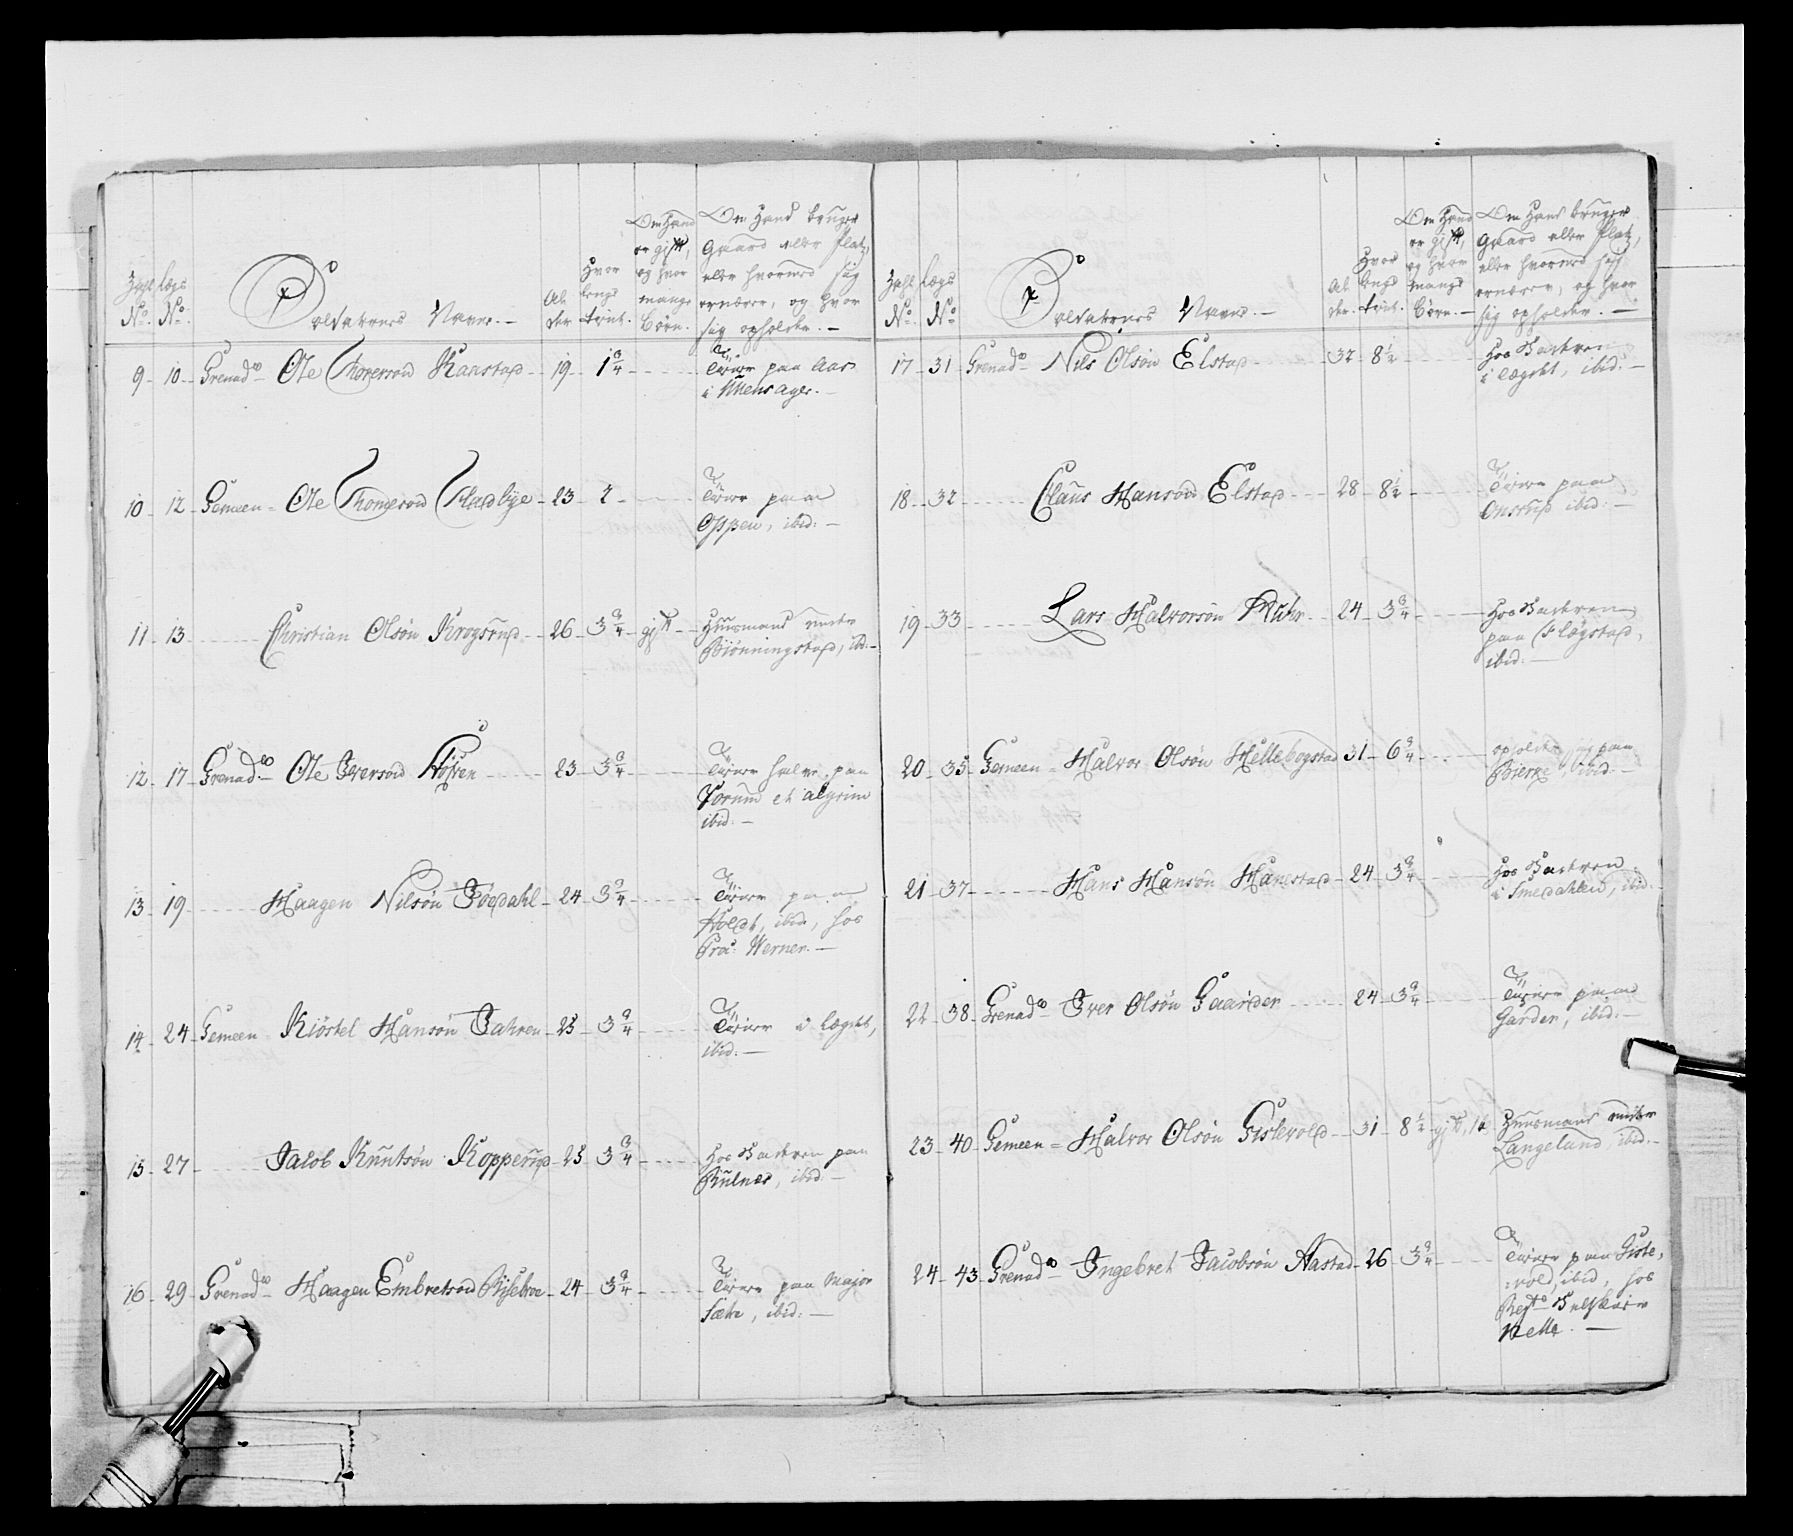 Zahl No.
Lægs No.
Soldaternes Navne. —
Alder.
Hvor lengst tient.
Om Hand er gift, og hvor mange Børn.
Om Hand bruger
Gaard eller Platz,
eller hvormed sig
ernærer, og hvor
sig opholder. —
9 - 10 - Grenad. Ole Thoresøn Kaastad - 19 - 1 3/4 - Tiener paa Aas
i Ullensager. —
10 - 12 - Gemeen - Ole Thomesøn Fladbye - 23 - 2 - Tiener paa
Oppen, ibid: —
11 - 13 - Christian Olsøn Krogsrud - 26 - 3 3/4 - gift - Huusmand under
Biønningstad, ibd. —
12 - 17 - Grenad. Ole Iversøn - 23 - 3 3/4 - Tiener paa
ibid: —
13 - 19 - Haagen Nilsøn - 24 - 3 3/4 - Tiener paa
Holdt, ibid, hos
Werner. —
14 - 24 - Gemeen Kiøstel Hansøn Jahren - 25 - 3 3/4 - Tiener i Lægdet,
ibid: —
15 - 27 - Jacob Knutsøn Kopperud - 25 - 3 3/4 - Hos Faderen paa
Kulnes, ibid: —
16 - 29 - Grenad. Haagen Embretsøn Risebroe - 24 - 3 3/4 - Tiener paa Major
Sætre, ibid: —
Zahl No.
Lægs No.
Soldaternes Navne. —
Alder.
Hvor lengst tient.
Om Hand er gift, og hvor mange Børn. —
Om Hand bruger
Gaard eller Platz,
eller hvormed sig
ernærer, og hvor
sig opholder. —
17 - 31 Grenad. Nils Olsøn Elstad - 32 - 8 1/2 - Hos Faderen
i Lægdet, ibid. —
18 - 32 - Claus Hansøn Elstad - 28 - 8 1/2 - Tiener paa
Onsrud ibid: —
19 - 33 - Lars Halvorsøn - 24 - 3 3/4 - Hos Faderen
paa Kløgstad,
ibid: —
20 - 35 - Gemeen - Halvor Olsøn Hellebogstad 31 - 6 3/4 - opholder sig paa
Bierke, ibid: —
21 - 37 - Hans Hansøn Hanestad - 24 - 3 3/4 - Hos Faderen
i Smedahlen, ibid.
22 - 38 - Grenad. Iver Olsøn Gaarder - 24 - 3 3/4 - Tiener paa
Garder, ibid: —
23 - 40 - Gemeen - Halvor Olsøn Gistevold - 31 - 8 1/2 - gift, Huusmand under
Langeland, ibid. —
24 - 43 - Grenad. Ingebret Jacobsøn Aastad - 26 - 3 3/4 - Tiener paa Giste-
vold, ibid, hos
Feltskier
Nelle. —